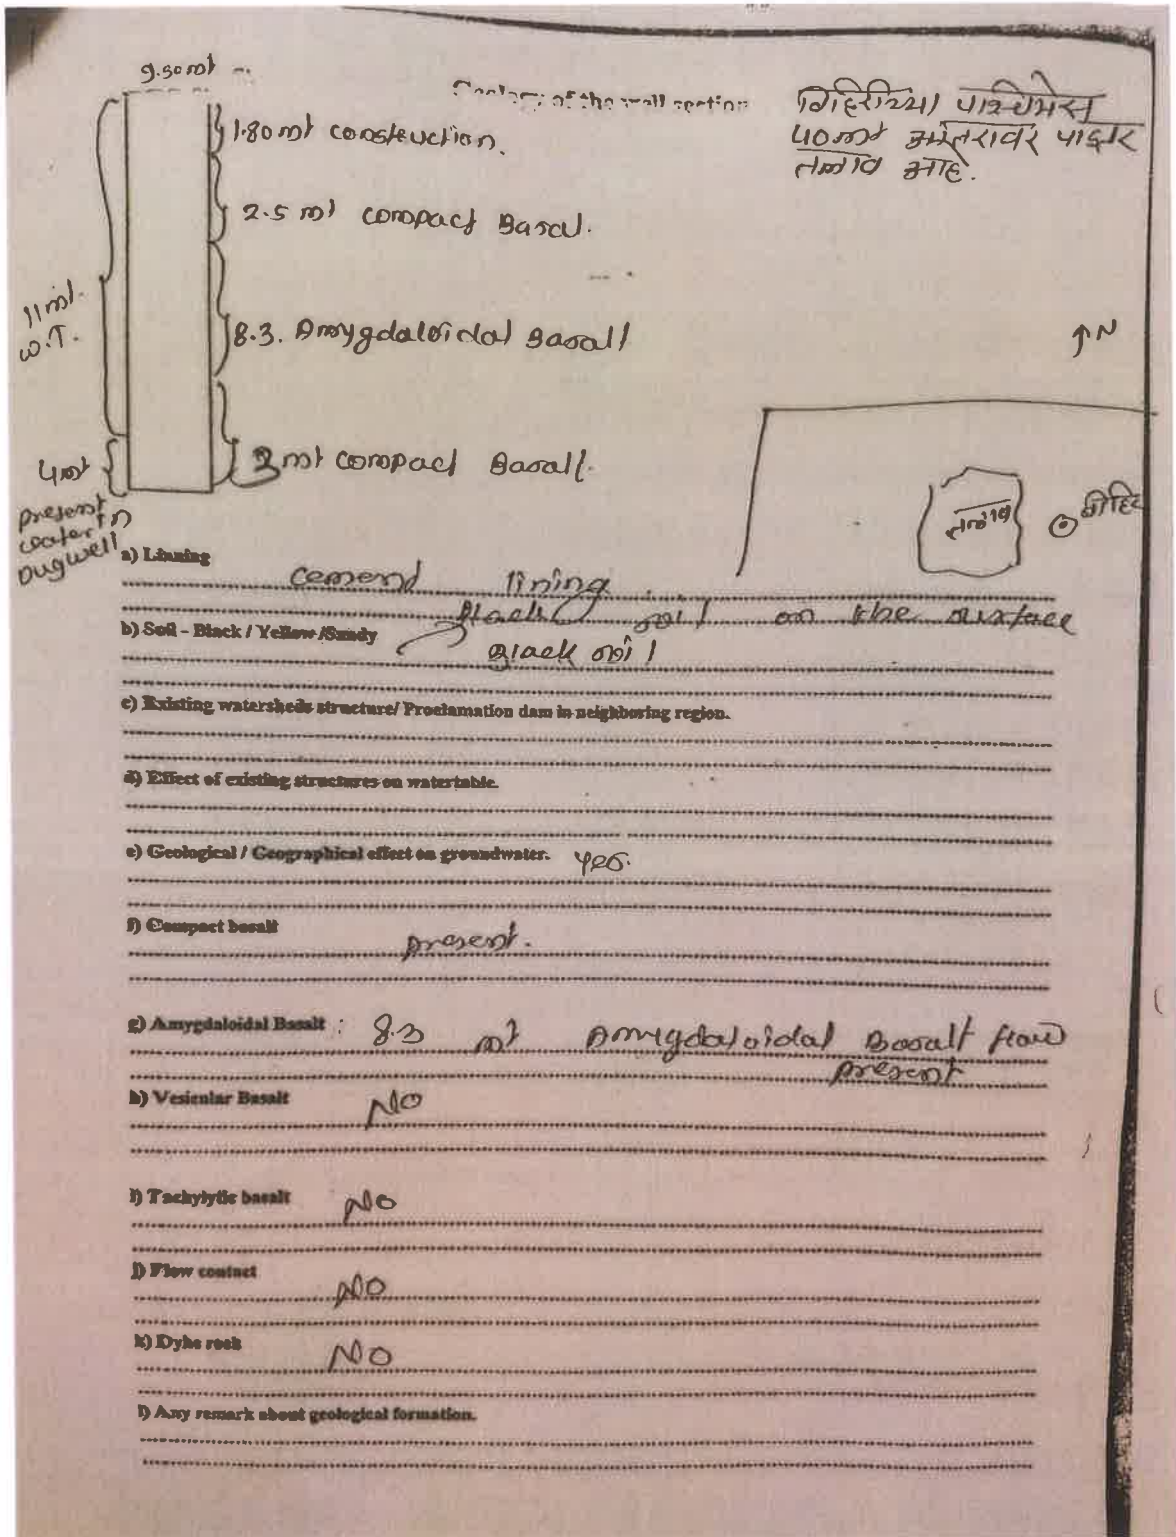 9.50 mt
Geology of the well section
विहिरीच्या पश्चिमेस
40 mt अंतरावर पाझर
तलाव आहे.
1.80 mt construction.
2.5 mt compact Basal.
11 mt.
W.T.
8.3. Amygdaloidal Basalt
↑N
4 mt
present
water in
Dugwell
3 mt compact Basalt.
तलाव
विहिर
a) Linning
cemend lining
black soil on the surface
b) Soil - Black / Yellow /Sandy
Black soil
c) Existing watersheds structure/ Proclamation dam in neighboring region.
d) Effect of existing structures on watertable.
e) Geological / Geographical effect on groundwater. yes.
f) Compact basalt
present.
g) Amygdaloidal Basalt : 8.3 mt Amygdaloidal Basalt flow
present
h) Vesicular Basalt
No
i) Tachylytic basalt
No
j) Flow contact
No
k) Dyke rock
No
l) Any remark about geological formation.